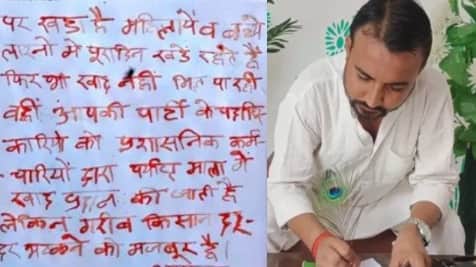 पर खडा है महिलायेंव बच्चे
लाइनो में पूरादिन खडे रहते है
फिर भी खाद नहीं मिल पा रही
वहीं आपकी पार्टी के पदाधि-
कारियो को प्रशासनिक कर्म-
चारियों द्वारा पर्याप्त मात्रा में
खाद प्रदान की जाती है
लेकिन गरीब किसान दर-
दर भटकने को मजबूर है।